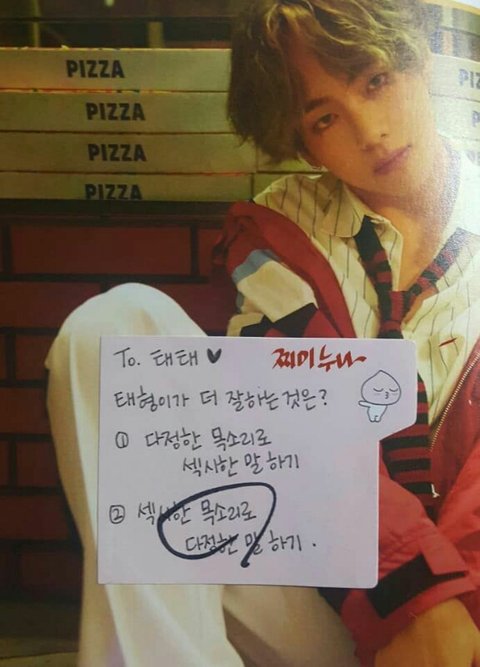 PIZZA
PIZZA
PIZZA
PIZZA
PI
To. 태태 ♥
찌미누나~
태형이가 더 잘하는 것은?
① 다정한 목소리로
섹시한 말 하기
② 섹시한 목소리로
다정한 말 하기.